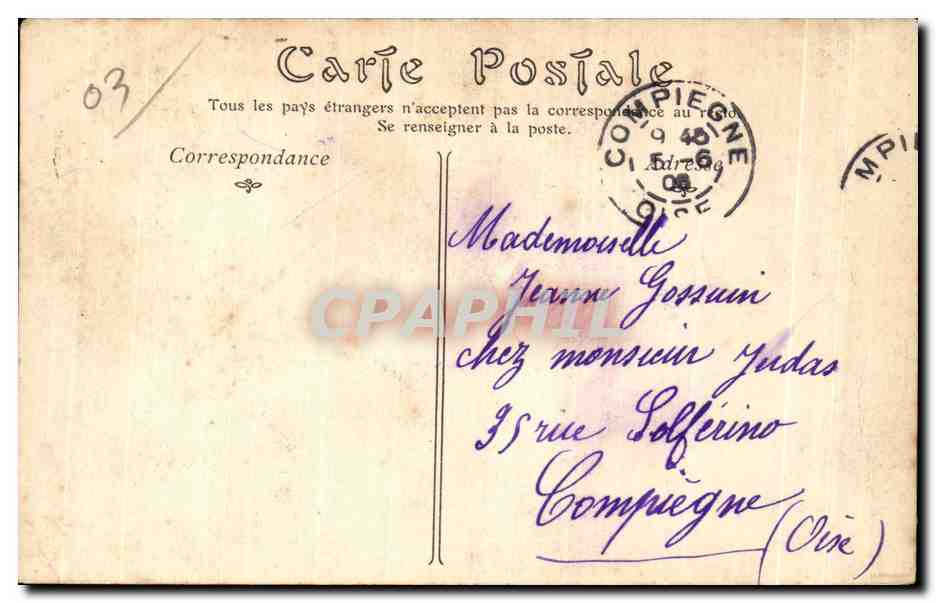 03
Carte Postale
Tous les pays étrangers n'acceptent pas la correspondance au recto
Se renseigner à la poste.
Correspondance
Adresse
COMPIEGNE
9 45
5 -6
OISE
MPIE
Mademoiselle
Jeanne Gossuin
chez monsieur Judas
35 rue Solférino
Compiègne
(Oise)
CPAPHIL